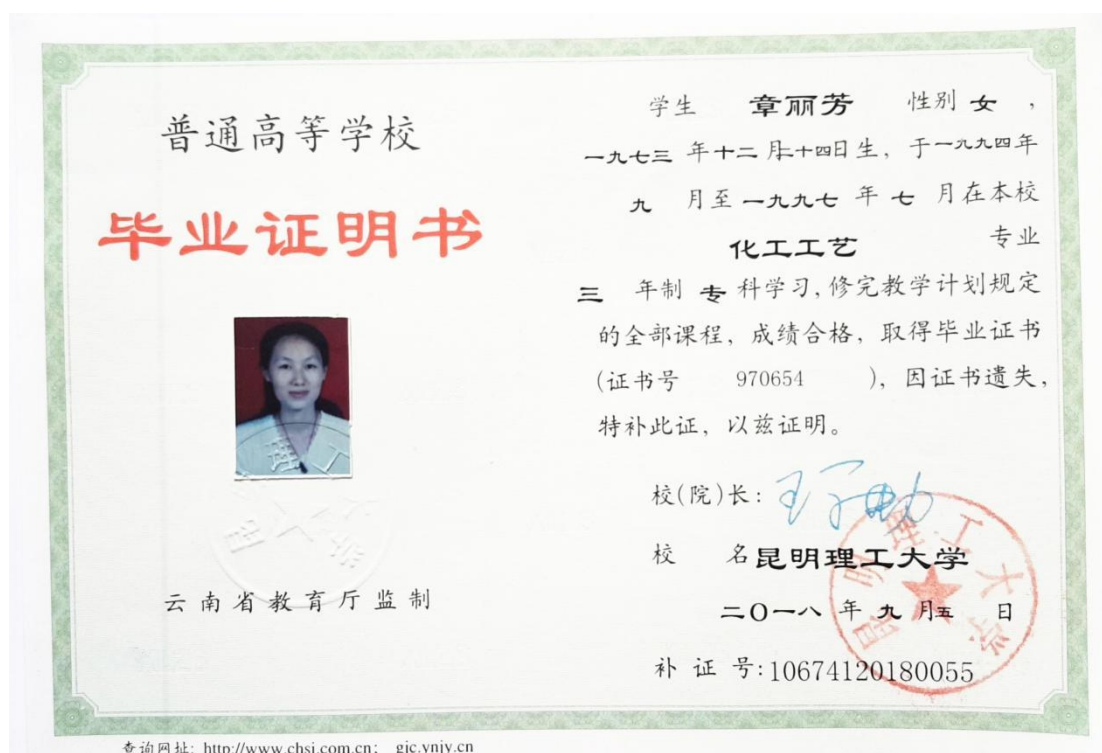 普通高等学校
毕业证明书
云南省教育厅监制
学生 章丽芳 性别 女 ,
一九七三 年十二月二十四日生, 于一九九四年
九 月至 一九九七 年 七 月在本校
化工工艺 专业
三 年制 专 科学习, 修完教学计划规定
的全部课程, 成绩合格, 取得毕业证书
(证书号 970654 ), 因证书遗失,
特补此证, 以兹证明。
校(院)长:
校 名 昆明理工大学
二〇一八 年 九 月五 日
补 证 号: 10674120180055
昆明理工大学
查询网址: http://www.chsi.com.cn; gjc.ynjy.cn